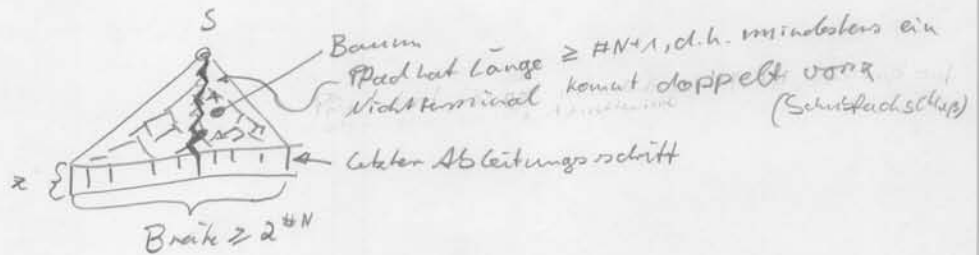 S
Baum
Pfad hat Länge ≥ #N+1, d.h. mindestens ein
Nichtterminal kommt doppelt vor
(Schubfachschluß)
letzter Ableitungsschritt
z {
Breite ≥ 2^#N